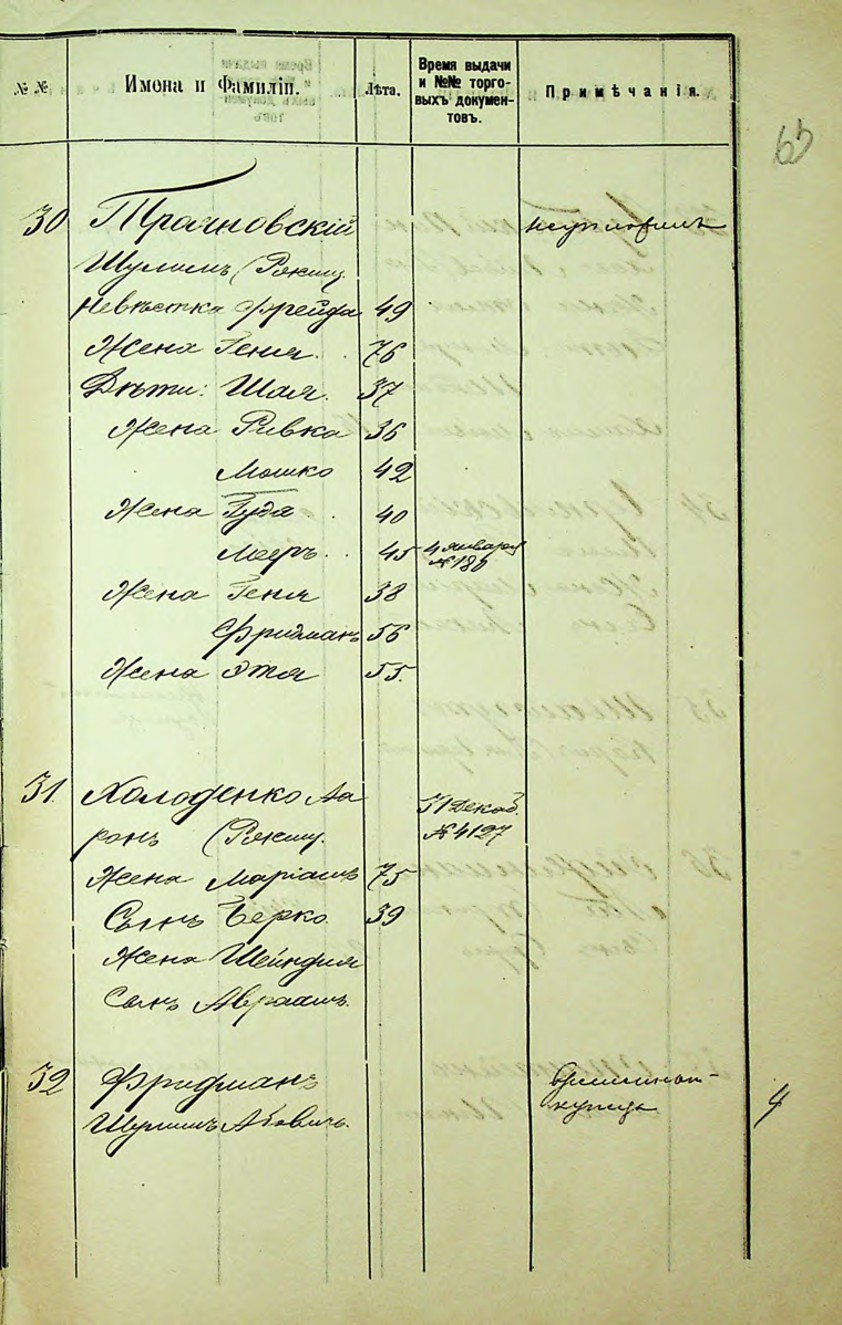 №№ Имена и Фамиліи. Лѣта. Время выдачи и №№ торговыхъ документовъ. Примѣчанія.
63
30 Трояновскій
Шулимъ (
Невѣстка Фрейда 49
Жена Геня. 76
Дѣти: Шая. 37
Жена Ривка 36
Мошко 42
Жена Гуда 40
Мееръ. 45 4 января
№ 180
Жена Геня 38
Фридманъ 56
Жена Этя 55.
31. Холоденко Аа 31 Декаб.
ронъ ( № 4127
Жена Маріамъ 75
Сынъ Берко 39
Жена Шейндля
Сынъ Авраамъ.
32 Фридманъ
Шулимъ Абовичъ. купецъ 4